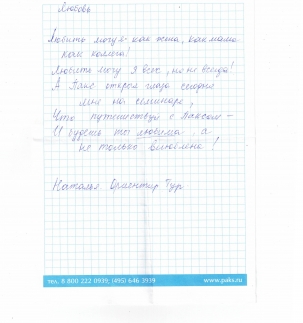 Любовь
Любить могу я как жена, как мама
как коллега!
Любить могу я всех, но не всегда!
А Пакс открыл глаза сегодня
мне на семинаре,
Что путешествуя с Паксом —
И будешь ты любима, а
не только влюблена!
Наталья Ориентир Тур
тел. 8 800 222 0939, (495) 646 3939
www.paks.ru